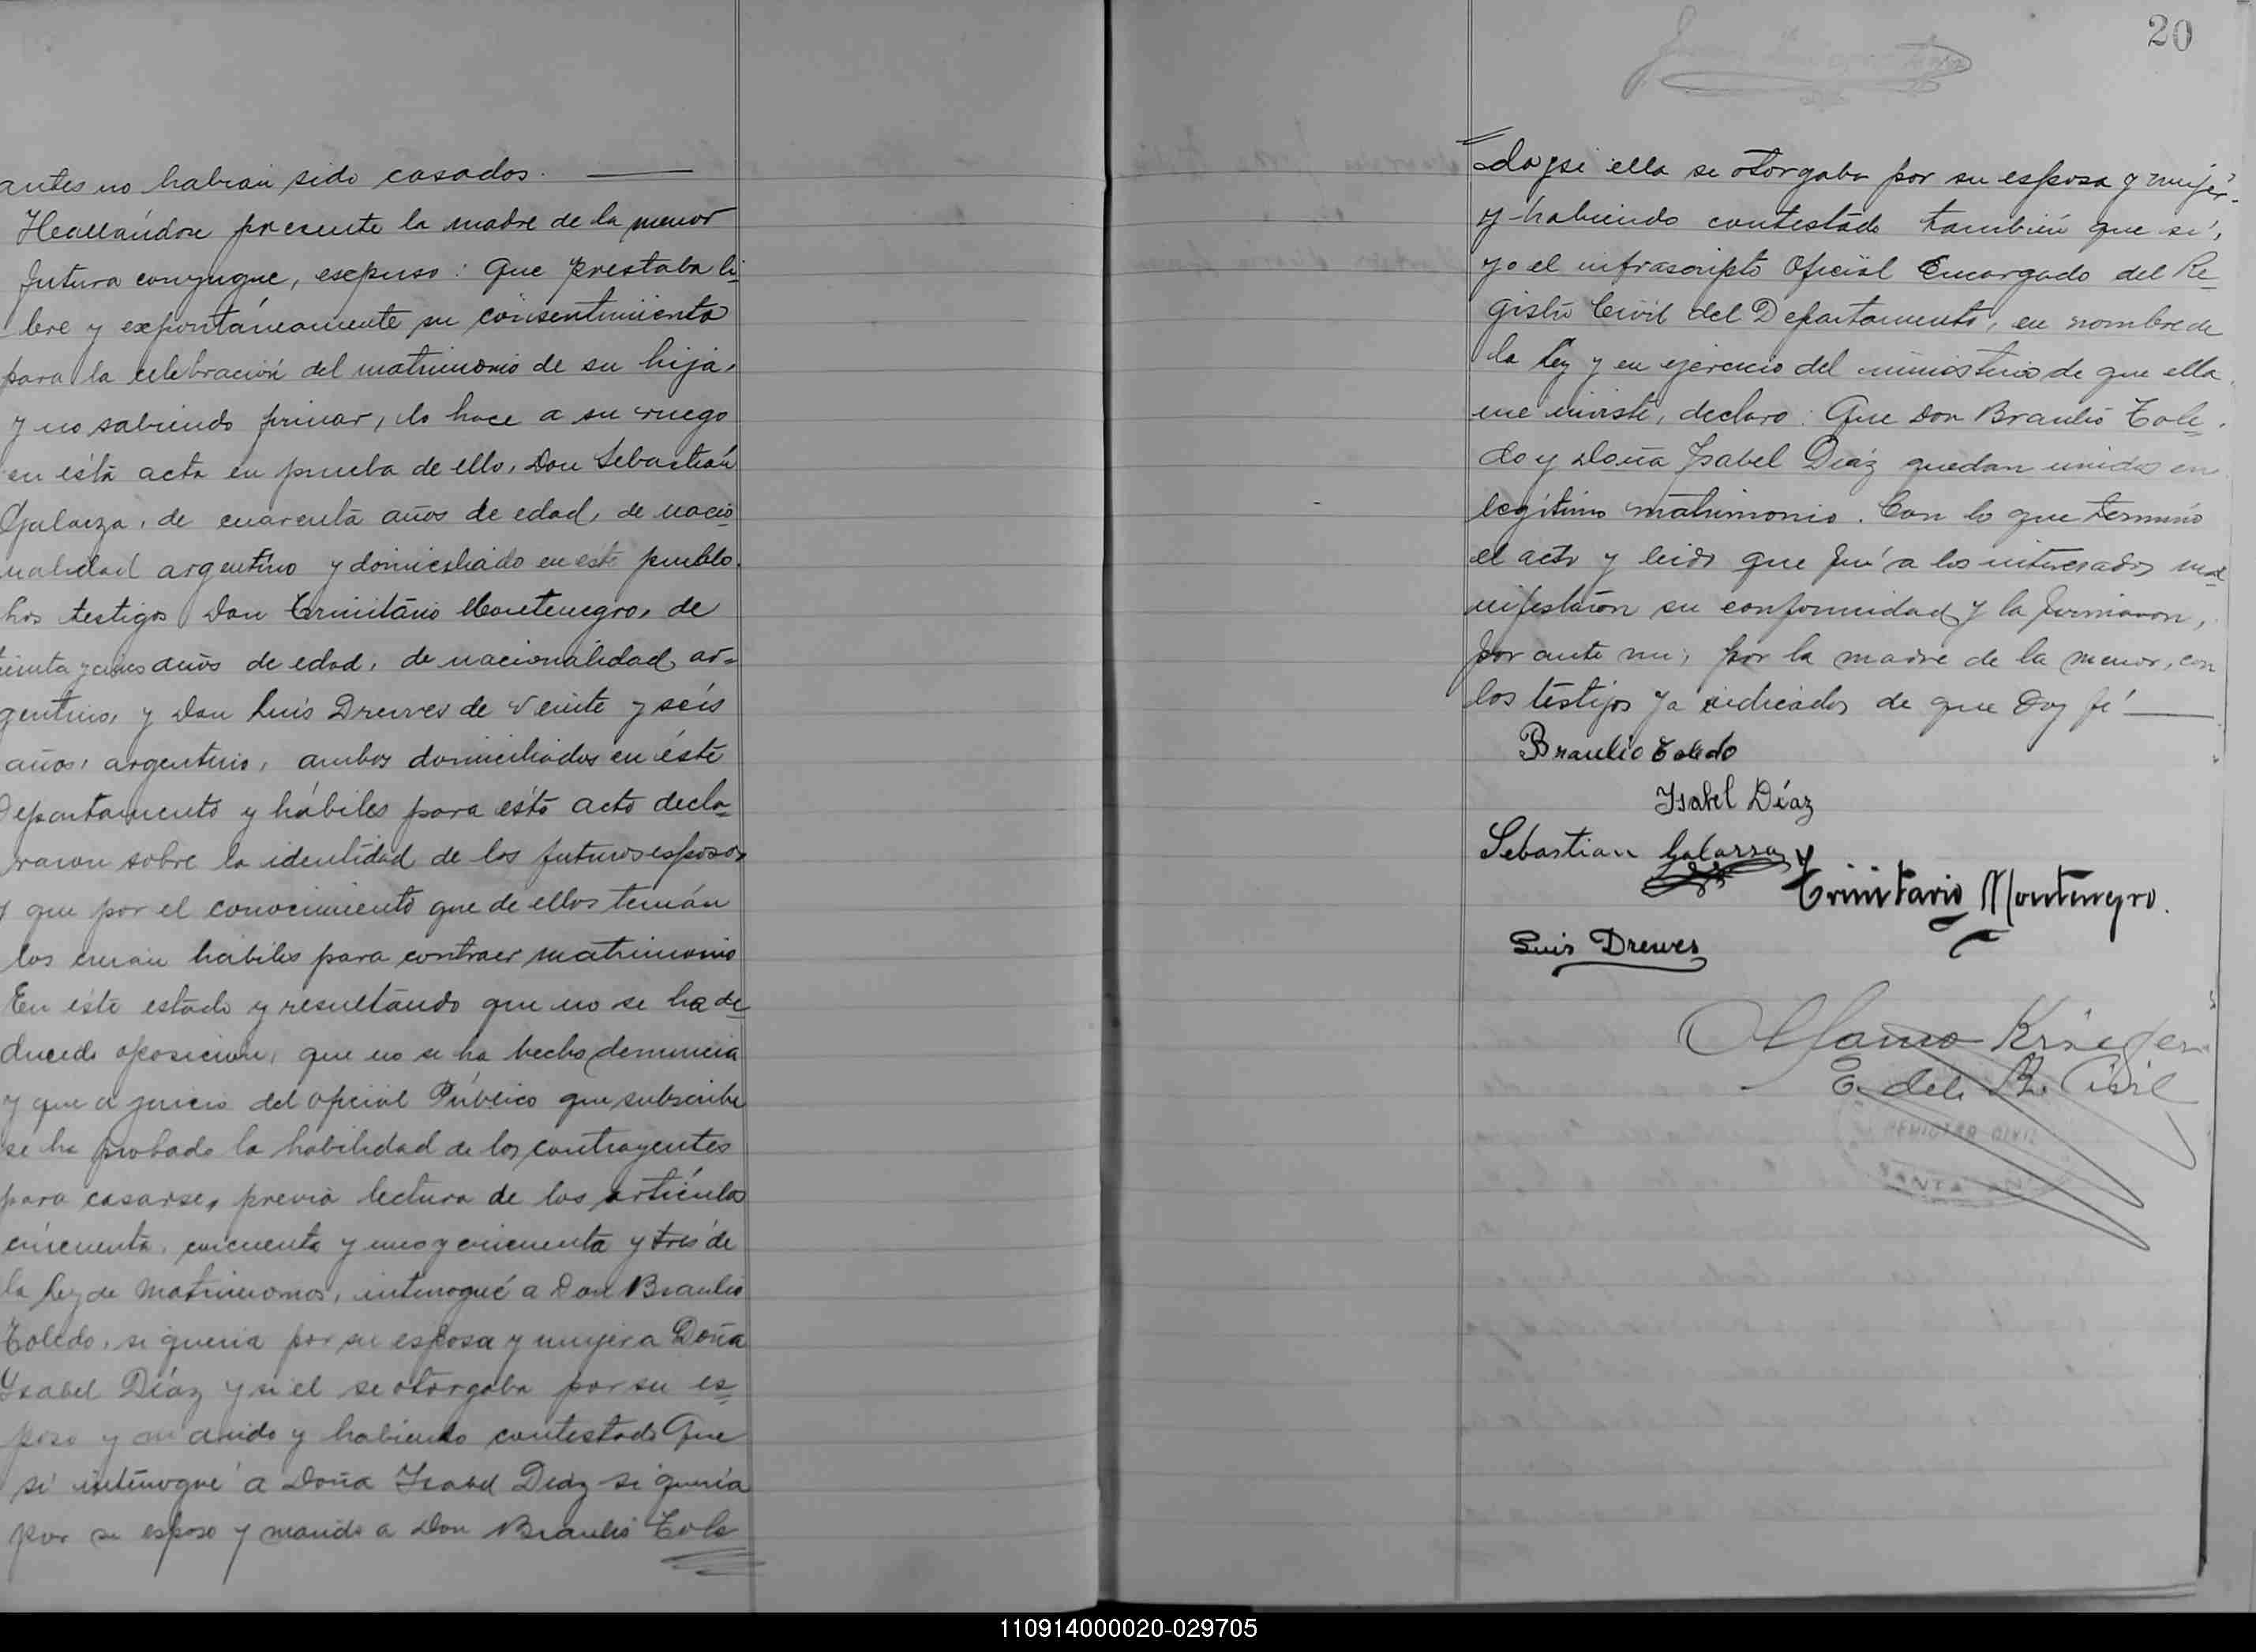 antes no habian sido casados.
Heallándose presente la madre de la menor
futura conyugue, esepuso: Que prestaba li=
bre y expontáneamente su consentimiento
para la celebración del matrimonio de su hija,
y no sabiendo firmar, lo hace a su ruego
en ésta acta en prueba de ello, Don Sebastián
Galarza, de cuarenta años de edad, de nacio=
nalidad argentino y domiciliado en este pueblo.
Los testigos Don Trinitario Montenegro, de
treinta y cinco años de edad, de nacionalidad ar=
gentino, y Don Luis Drewes de veinte y seis
años, argentino, ambos domiciliados en éste
Departamento y hábiles para ésto acto decla=
raron sobre la identidad de los futuros esposos
y que por el conocimiento que de ellos tenían
los creian hábiles para contraer matrimonio
En éste estado y resultando que no se ha de=
ducido oposicion, que no se ha hecho denuncia
y que a juicio del oficial Público que subscribe
se ha probado la habilidad de los contrayentes
para casarse, previa lectura de los artículos
cincuenta, cincuenta y uno y cincuenta y tres de
la Ley de Matrimonios, interrogué a Don Braulio
Toledo, si queria por su esposa y mujer a Doña
Ysabel Díaz y si el se otorgaba por su es=
poso y marido y habiendo contestado Que
si interrogué a Doña Ysabel Diaz si quería
por su esposo y marido a Don Braulio Tole
20
do y si ella se otorgaba por su esposa y mujer.
y habiendo contestado también que sí,
yo el infrascripto Oficial Encargado del Re=
gistro Civil del Departamento, en nombre de
la Ley y en ejercicio del ministerio de que ella
me inviste, declaro: Que Don Braulio Tole=
do y Doña Ysabel Diáz quedan unidos en
legítimo matrimonio. Con lo que terminó
el acto y leido que fué a los interesados ma=
nifestaron su conformidad y la firmaron,
por ante mi, por la madre de la menor, con
los testigos ya indicados de que doy fé
Braulio Toledo
Ysabel Díaz
Sebastian Galarza
Trinitario Montenegro.
Luis Drewes
Krieger
E. del R. Civil
REGISTRO CIVIL
SANTA ANA
110914000020-029705